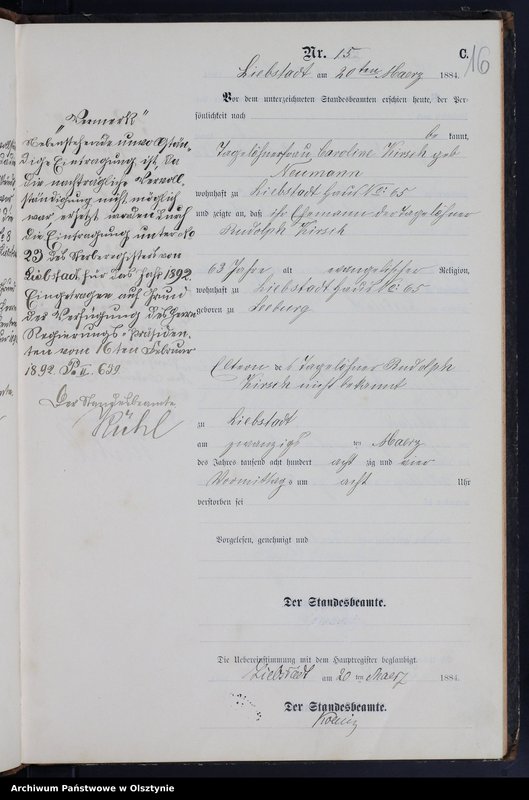 Nr. 15
C.
16
Liebstadt am 20ten Maerz 1884.
Vor dem unterzeichneten Standesbeamten erschien heute, der Per-
sönlichkeit nach
be kannt,
Tagelöhnerfrau Caroline Kirsch geb
Neumann
wohnhaft zu Liebstadt Haus No: 65
und zeigte an, daß ihr Ehemann der Tagelöhner
Rudolph Kirsch
63 Jahre alt evangelischer Religion,
wohnhaft zu Liebstadt Haus No: 65
geboren zu
Eltern des Tagelöhner Rudolph
Kirsch nicht bekannt
zu Liebstadt
am zwanzigs ten Maerz
des Jahres tausend acht hundert acht zig und vier
Vormittags um acht Uhr
verstorben sei
Vorgelesen, genehmigt und
Der Standesbeamte.
Die Uebereinstimmung mit dem Hauptregister beglaubigt.
Liebstadt am 20 ten Maerz 1884.
Der Standesbeamte.
„Vermerk"
Nebenstehende unvollstän-
dige Eintragung ist, da
die nachträgliche Vervoll-
ständigung nicht möglich
war, ersetzt worden durch
die Eintragung unter No
23 des Sterberegisters von
Liebstadt für das Jahr 1892.
Eingetragen auf Grund
der Verfügung des Herrn
Regierungs-Präsiden-
ten vom 16ten Februar
1892. 639
Der Standesbeamte
Kühl
Archiwum Państwowe w Olsztynie